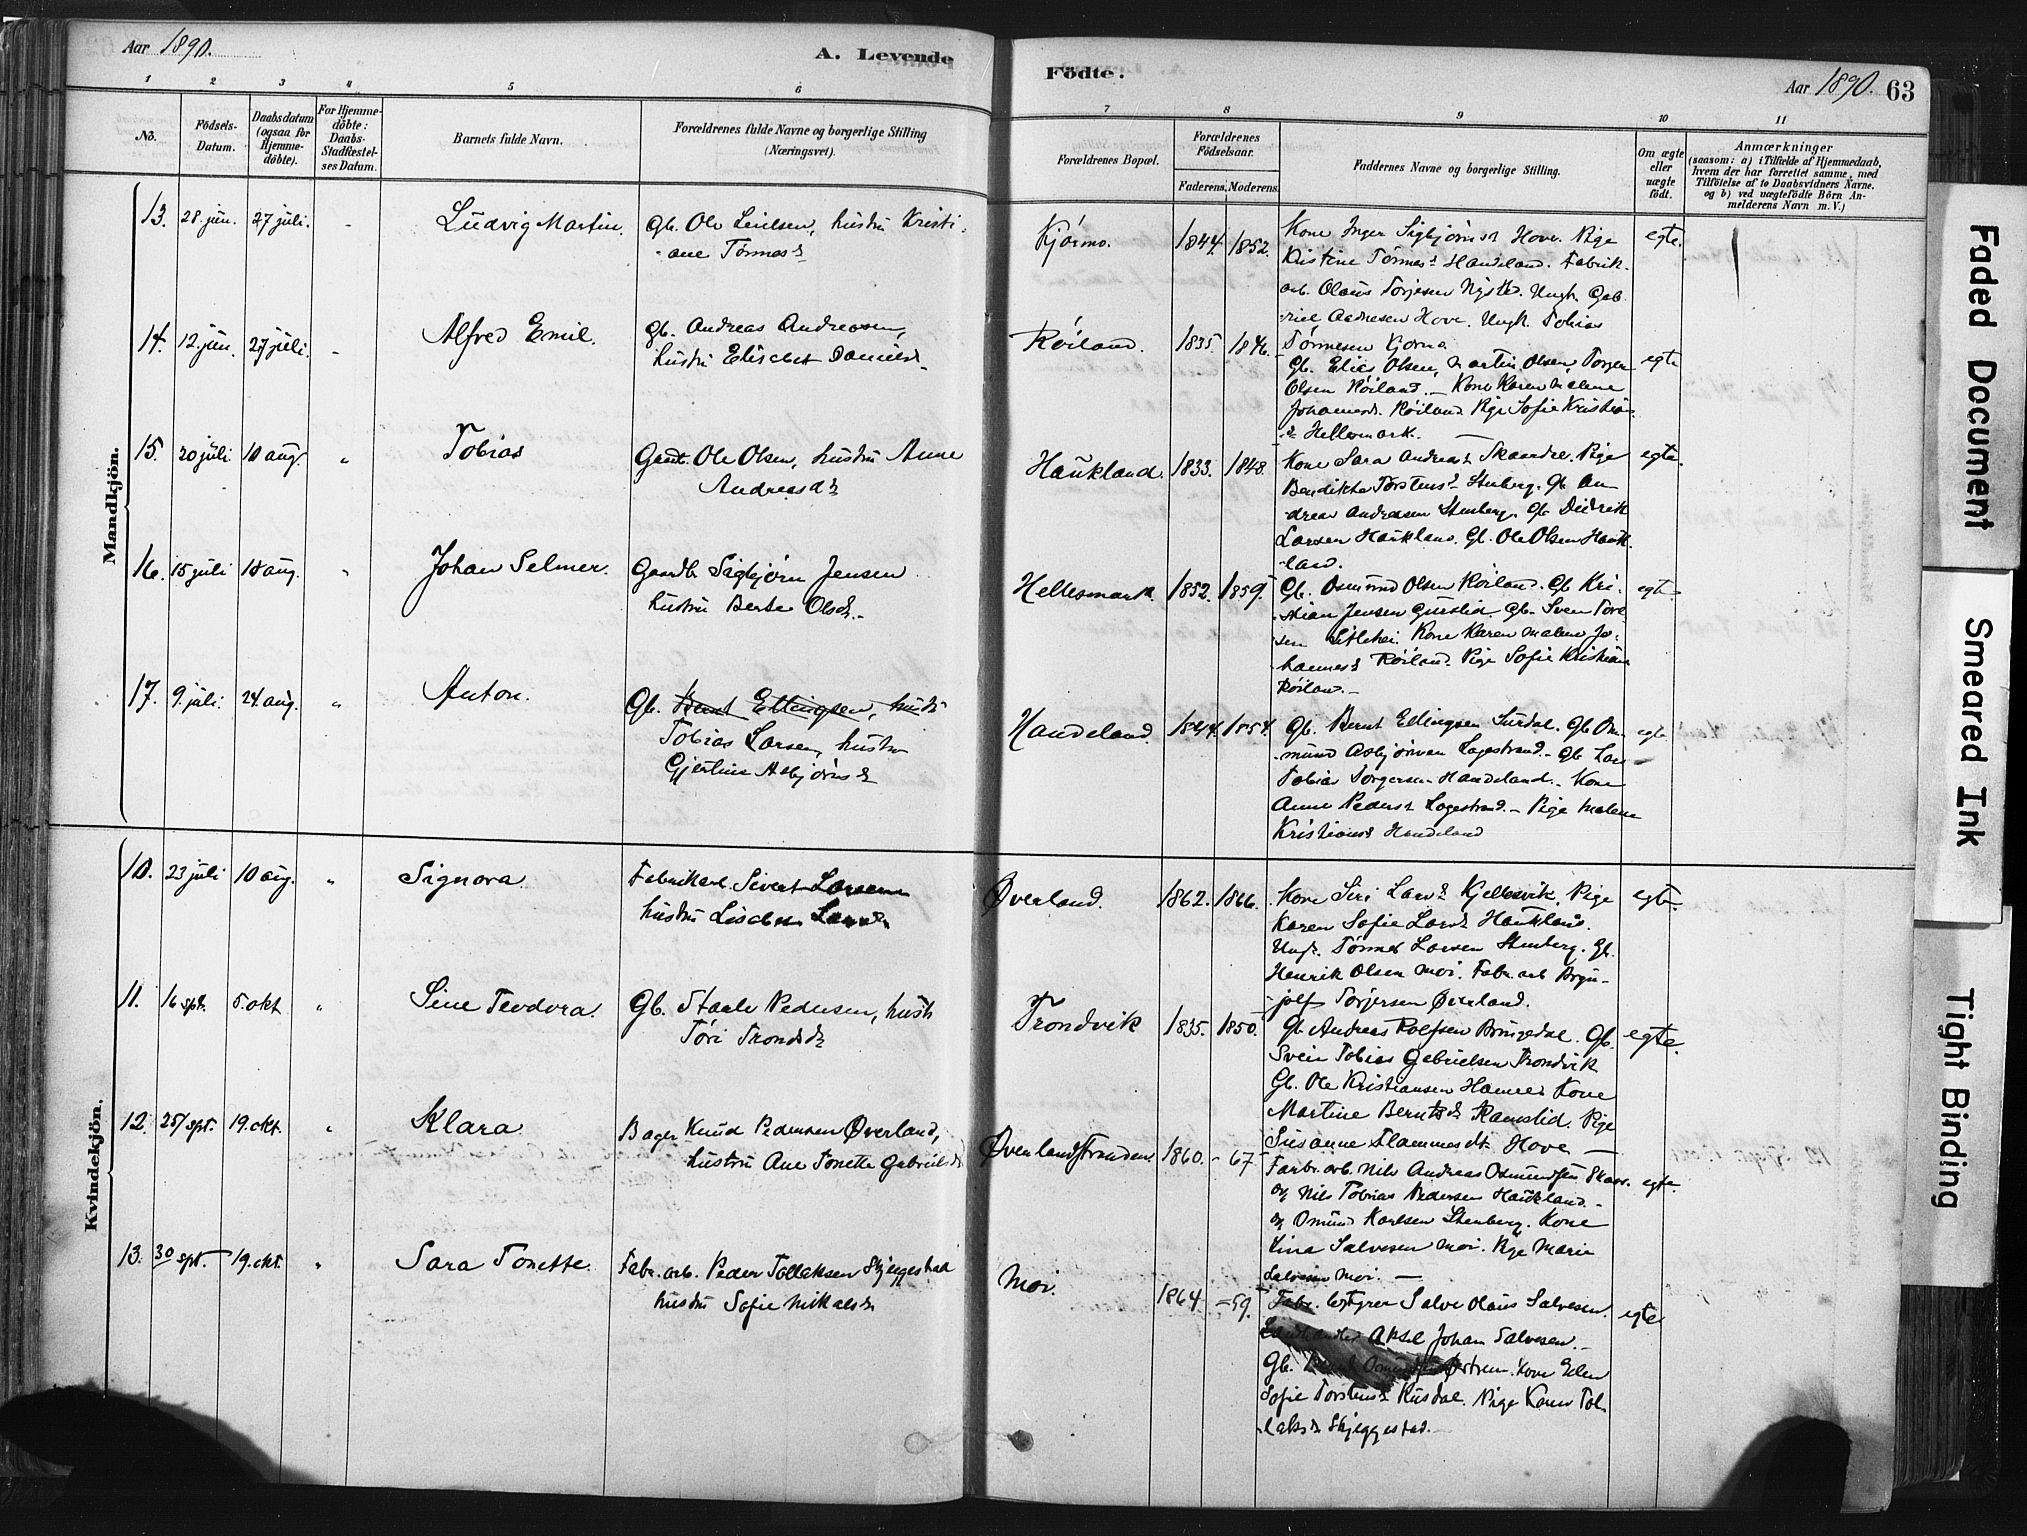 Aar 1890.
A. Levende
Fødte.
Aar 1890. 63
1 2 3 4 5 6 7 8 9 10 11
No.
Födsels-
Datum.
Daabsdatum
(ogsaa for
Hjemme-
döbte).
For Hjemme-
döbte:
Daabs-
Stadfæstel-
ses Datum.
Barnets fulde Navn.
Forældrenes fulde Navne og borgerlige Stilling
(Næringsvei).
Forældrenes Bopæl.
Forældrenes
Födselsaar.
Faderens. Moderens.
Faddernes Navne og borgerlige Stilling.
Om ægte
eller
uægte
födt.
Anmærkninger
(saasom: a) i Tilfælde af Hjemmedaab,
hvem der har forrettet samme, med
Tilföielse af to Daabsvidners Navne.
og b) ved uægtefödte Börn An-
melderens Navn m. V.)
Mandkjön.
13. 28 jun. 27 juli. - Ludvig Martin.
Gb. Ole hustru Kristi-
ane Tønnesd
Kjørmo. 1844. 1852.
Kone Inger Sigbjørnsd Hove. Pige
Kristine Tønnesd Handeland. Fabrik.
arb. Olaus Torjesen Ungk. Gab-
riel Andresen Hove. Ungk. Tobias
Tønnesen Kjørmo
egte.
14. 12 jun. 27 juli. - Alfred Emil.
Gb. Andreas Andreasen,
hustru Elisabet Danielsd.
Røiland. 1835. 1846.
Gb. Elias Olsen, Martin Olsen, Torger
Olsen Røiland. — Kone Karen Malene
Johannesd. Røiland. Pige Sofie Kristians
d. Hellesmark. —
egte
15. 20 juli. 10 aug. " Tobias
Gaardb. Ole Olsen, hustru Anne
Andreasd.
Haukland. 1833. 1848.
Kone Sara Andreasd. Pige
Bendikte Torstensd Stenberg. Gb. An-
dreas Andreasen Stenberg. Gb. Didrik
Larsen Haukland. Gb. Ole Olsen Hauk-
land.
egte.
16. 15 juli 10 aug. " Johan Selmer.
Gaardb. Sigbjørn Jensen
hustru Berte Olsd.
Hellesmark. 1852. 1859.
Gb. Osmund Olsen Røiland. Gb. Kri-
stian Jensen Gb. Sven Tore-
sen Kone Karen Malene Jo-
hannesd Røiland. Pige Sofie Kristians
Røiland. —
egte.
17. 9. juli. 24 aug. " Anton.
Gb. Bernt Ellingsen, hustr
Tobias Larsen, hustru
Gjertine Asbjørnsd
Handeland. 1844. 1854.
Gb. Bernt Ellingsen Surdal. Gb. Om-
mund Asbjørnsen Logestrand. Gb. Lars
Tobias Torgersen Handeland. Kone
Anne Pedersd Logestrand — Pige Malene
Kristiansd Handeland
egte
Kvindekjön.
10. 23 juli 10 aug. " Signora.
Fabrikarb. Sivert Larsen
hustru Lisabet Larsd
Øverland. 1862. 1866.
Kone Siri Larsd Kjellesvik. Pige
Karen Sofie Larsd Haukland.
Ungk. Tønnes Larsen Stenberg. Gb.
Henrik Olsen Moi. Fabr. arb Bryn-
jolf Torjersen Øverland.
egte.
11. 16 spt. 5. okt " Sine Teodora.
Gb. Staale Pedersen, hustr
Tøri Trondsd
Trondvik 1835. 1850.
Gb. Andreas Rolfsen Gb.
Svein Tobias Gabrielsen Trondvik
Gb. Ole Kristiansen Kone
Martine Berntsd Ramslid. Pige
Susanne Hove —
egte.
12. 25/spt. 19. okt. " Klara
Bager Knud Pedersen Øverland,
hustru Ane Tonette Gabrielsd
Øverlandstranden. 1860. - 67
Fabr. arb. Nils Andreas Osmundsen
og Nils Tobias Pedersen Haukland. -
og Omund Karlsen Stenberg. Kone
Lina Salvesen Moi. Pige Marie
Salvesen Moi. —
egte.
13. 30 spt. 19. okt. " Sara Tonette.
Fabr. arb. Peder Tollaksen Skjeggestad
hustru Sofie Nikolaisd
Moi. 1864 - 59.
Fabr. bestyrer Salve Olaus Salvesen.
Landhandler Aksel Johan Salvesen. -
Gb. Kone Elen
Sofie Torstensd Rusdal. Pige Karen Tol-
laksd Skjeggestad.
egte
Faded Document
Smeared Ink
Tight Binding